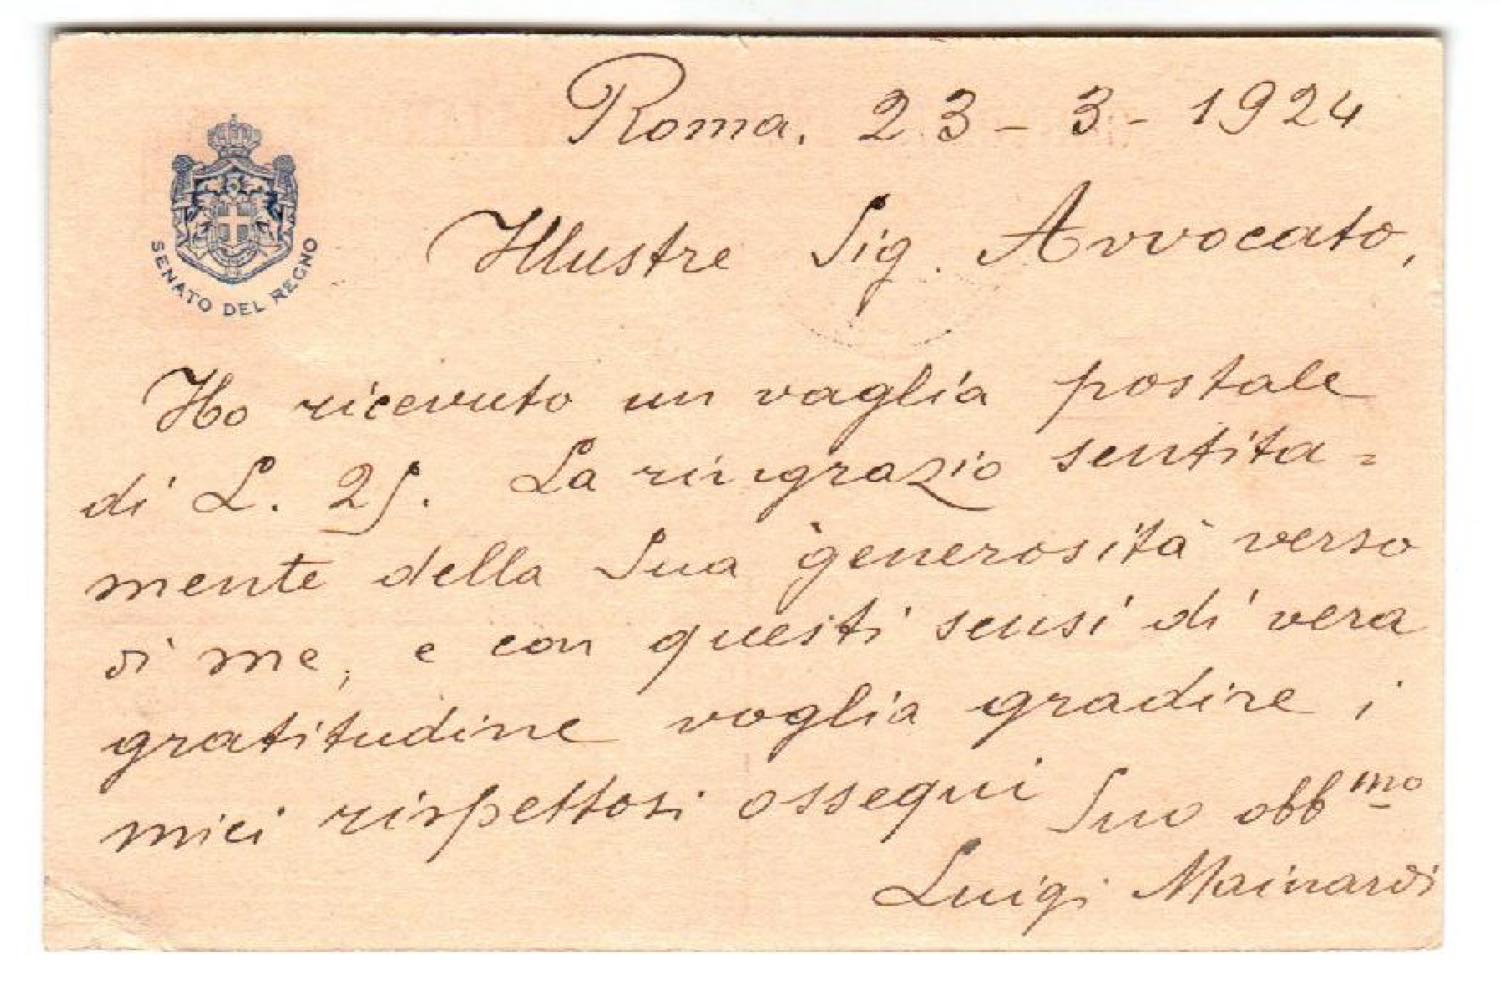 Roma, 23-3-1924
SENATO DEL REGNO
Illustre Sig. Avvocato,
Ho ricevuto un vaglia postale
di L. 25. La ringrazio sentita=
mente della Sua generosità verso
di me, e con questi sensi di vera
gratitudine voglia gradire i
miei rispettosi ossequi
Suo obb.mo
Luigi Mainardi